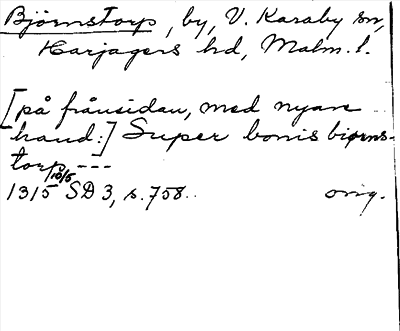 Björnstorp, by, V. Karaby sn,
Harjagers hd, Malm. l.
[på frånsidan, med nyare
hand:] Super bonis biørns-
torp ---
1315 10/5 SD 3, s. 758.. orig.